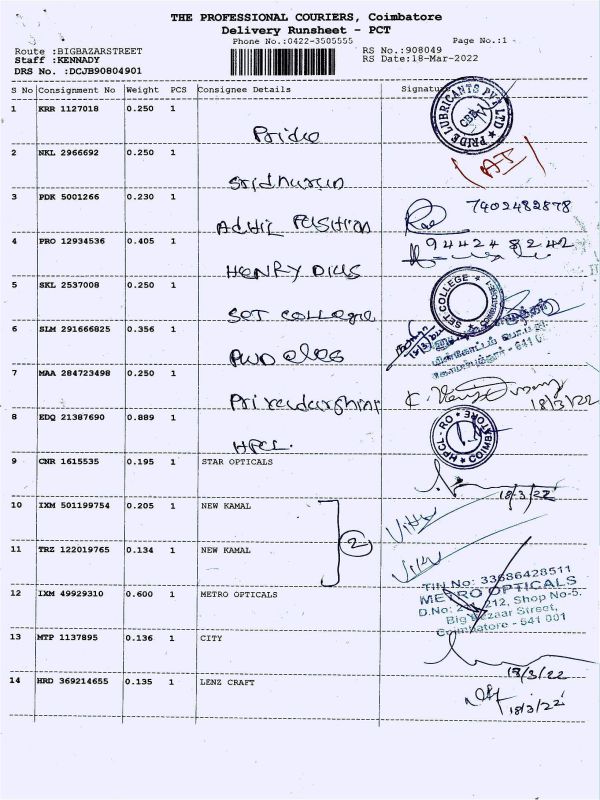 THE PROFESSIONAL COURIERS, Coimbatore
Delivery Runsheet - PCT
Phone No.:0422-3505555
Page No.:1
Route :BIGBAZARSTREET
RS No.:908049
Staff :KENNADY
RS Date:18-Mar-2022
DRS No. :DCJB90804901
S No Consignment No Weight PCS Consignee Details Signature
1 KRR 1127018 0.250 1 Pride
PRIDE LUBRICANTS PVT LTD
CBE
(AI)
2 NKL 2966692 0.250 1
3 PDK 5001266 0.230 1 Adhil Fashion
7402482878
4 PRO 12934536 0.405 1 HENRY DIES
944248242
5 SKL 2537008 0.250 1 SET COLLEGE
SET COLLEGE
6 SLM 291666825 0.356 1 PWD eles
மின்கோட்டம் பொ.ப.து
7 MAA 284723498 0.250 1 Priyadarshini
18/3/22
8 EDQ 21387690 0.889 1 HPCL.
HPCL - RO COIMBATORE
9 CNR 1615535 0.195 1 STAR OPTICALS
18/3/22
10 IXM 501199754 0.205 1 NEW KAMAL
2
11 TRZ 122019765 0.134 1 NEW KAMAL
12 IXM 49929310 0.600 1 METRO OPTICALS
TIN No: 33686428511
METRO OPTICALS
D.No: 212, Shop No-5,
Big Bazaar Street,
Coimbatore - 641 001
13 MTP 1137895 0.136 1 CITY
18/3/22
14 HRD 369214655 0.135 1 LENZ CRAFT
18/3/22